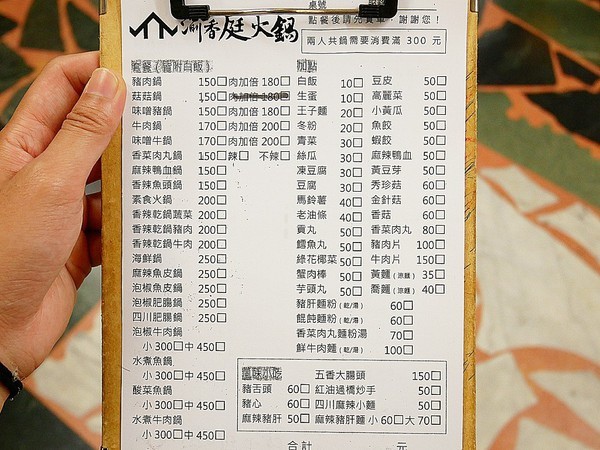 桌號
點餐後請先買單，謝謝您！
兩人共鍋需要消費滿 300 元
涮香庭火鍋
套餐（醬附白飯）
豬肉鍋 150□ 肉加倍 180□
菇菇鍋 150□ 肉加倍 180□
味噌豬鍋 150□ 肉加倍 180□
牛肉鍋 170□ 肉加倍 200□
味噌牛鍋 170□ 肉加倍 200□
香菜肉丸鍋 150□ 辣□ 不辣□
麻辣鴨血鍋 150□
香辣魚頭鍋 150□
素食火鍋 200□
香辣乾鍋蔬菜 200□
香辣乾鍋豬肉 200□
香辣乾鍋牛肉 200□
海鮮鍋 250□
麻辣魚皮鍋 250□
泡椒魚皮鍋 250□
泡椒肥腸鍋 250□
四川肥腸鍋 250□
泡椒牛肉鍋
小 300□ 中 450□
水煮魚鍋
小 300□ 中 450□
酸菜魚鍋
小 300□ 中 450□
水煮牛肉鍋
小 300□ 中 450□
加點
白飯 10□ 豆皮 50□
生蛋 10□ 高麗菜 50□
王子麵 20□ 小黃瓜 50□
冬粉 20□ 魚餃 50□
青菜 30□ 蝦餃 50□
絲瓜 30□ 麻辣鴨血 50□
凍豆腐 30□ 黃豆芽 50□
豆腐 30□ 秀珍菇 60□
馬鈴薯 40□ 金針菇 60□
老油條 40□ 香菇 60□
貢丸 50□ 香菜肉丸 80□
鱈魚丸 50□ 豬肉片 100□
綠花椰菜 50□ 牛肉片 150□
蟹肉棒 50□ 黃麵（涼麵） 35□
芋頭丸 50□ 蕎麵（涼麵） 40□
豬肝麵粉（乾/湯） 60□
餛飩麵粉（乾/湯） 60□
香菜肉丸麵粉湯 70□
鮮牛肉麵（乾/湯） 100□
滷味小吃
五香大腸頭 150□
豬舌頭 60□ 紅油過橋炒手 50□
豬心 60□ 四川麻辣小麵 50□
麻辣豬肝 50□ 麻辣豬肝麵 小 60□ 大 70□
合計 元